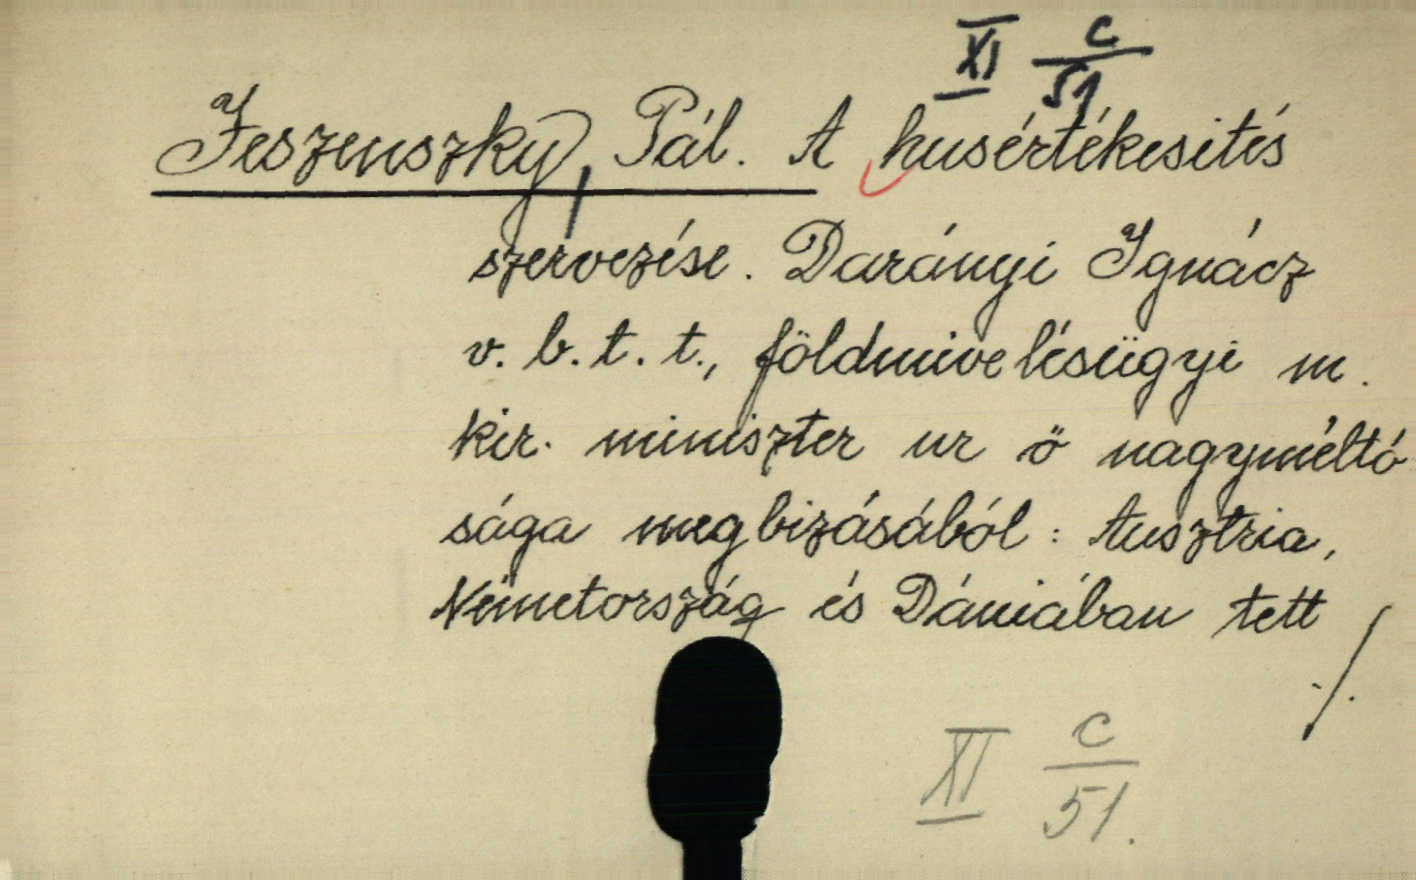 XI C/51
Jeszenszky, Pál. A husértékesítés
szervezése. Darányi Ignácz
v. b. t. t., földmivelésügyi m.
kir. miniszter ur ő nagyméltó
sága megbizásából: Ausztria,
Németország és Dániában tett
./.
XI C/51.